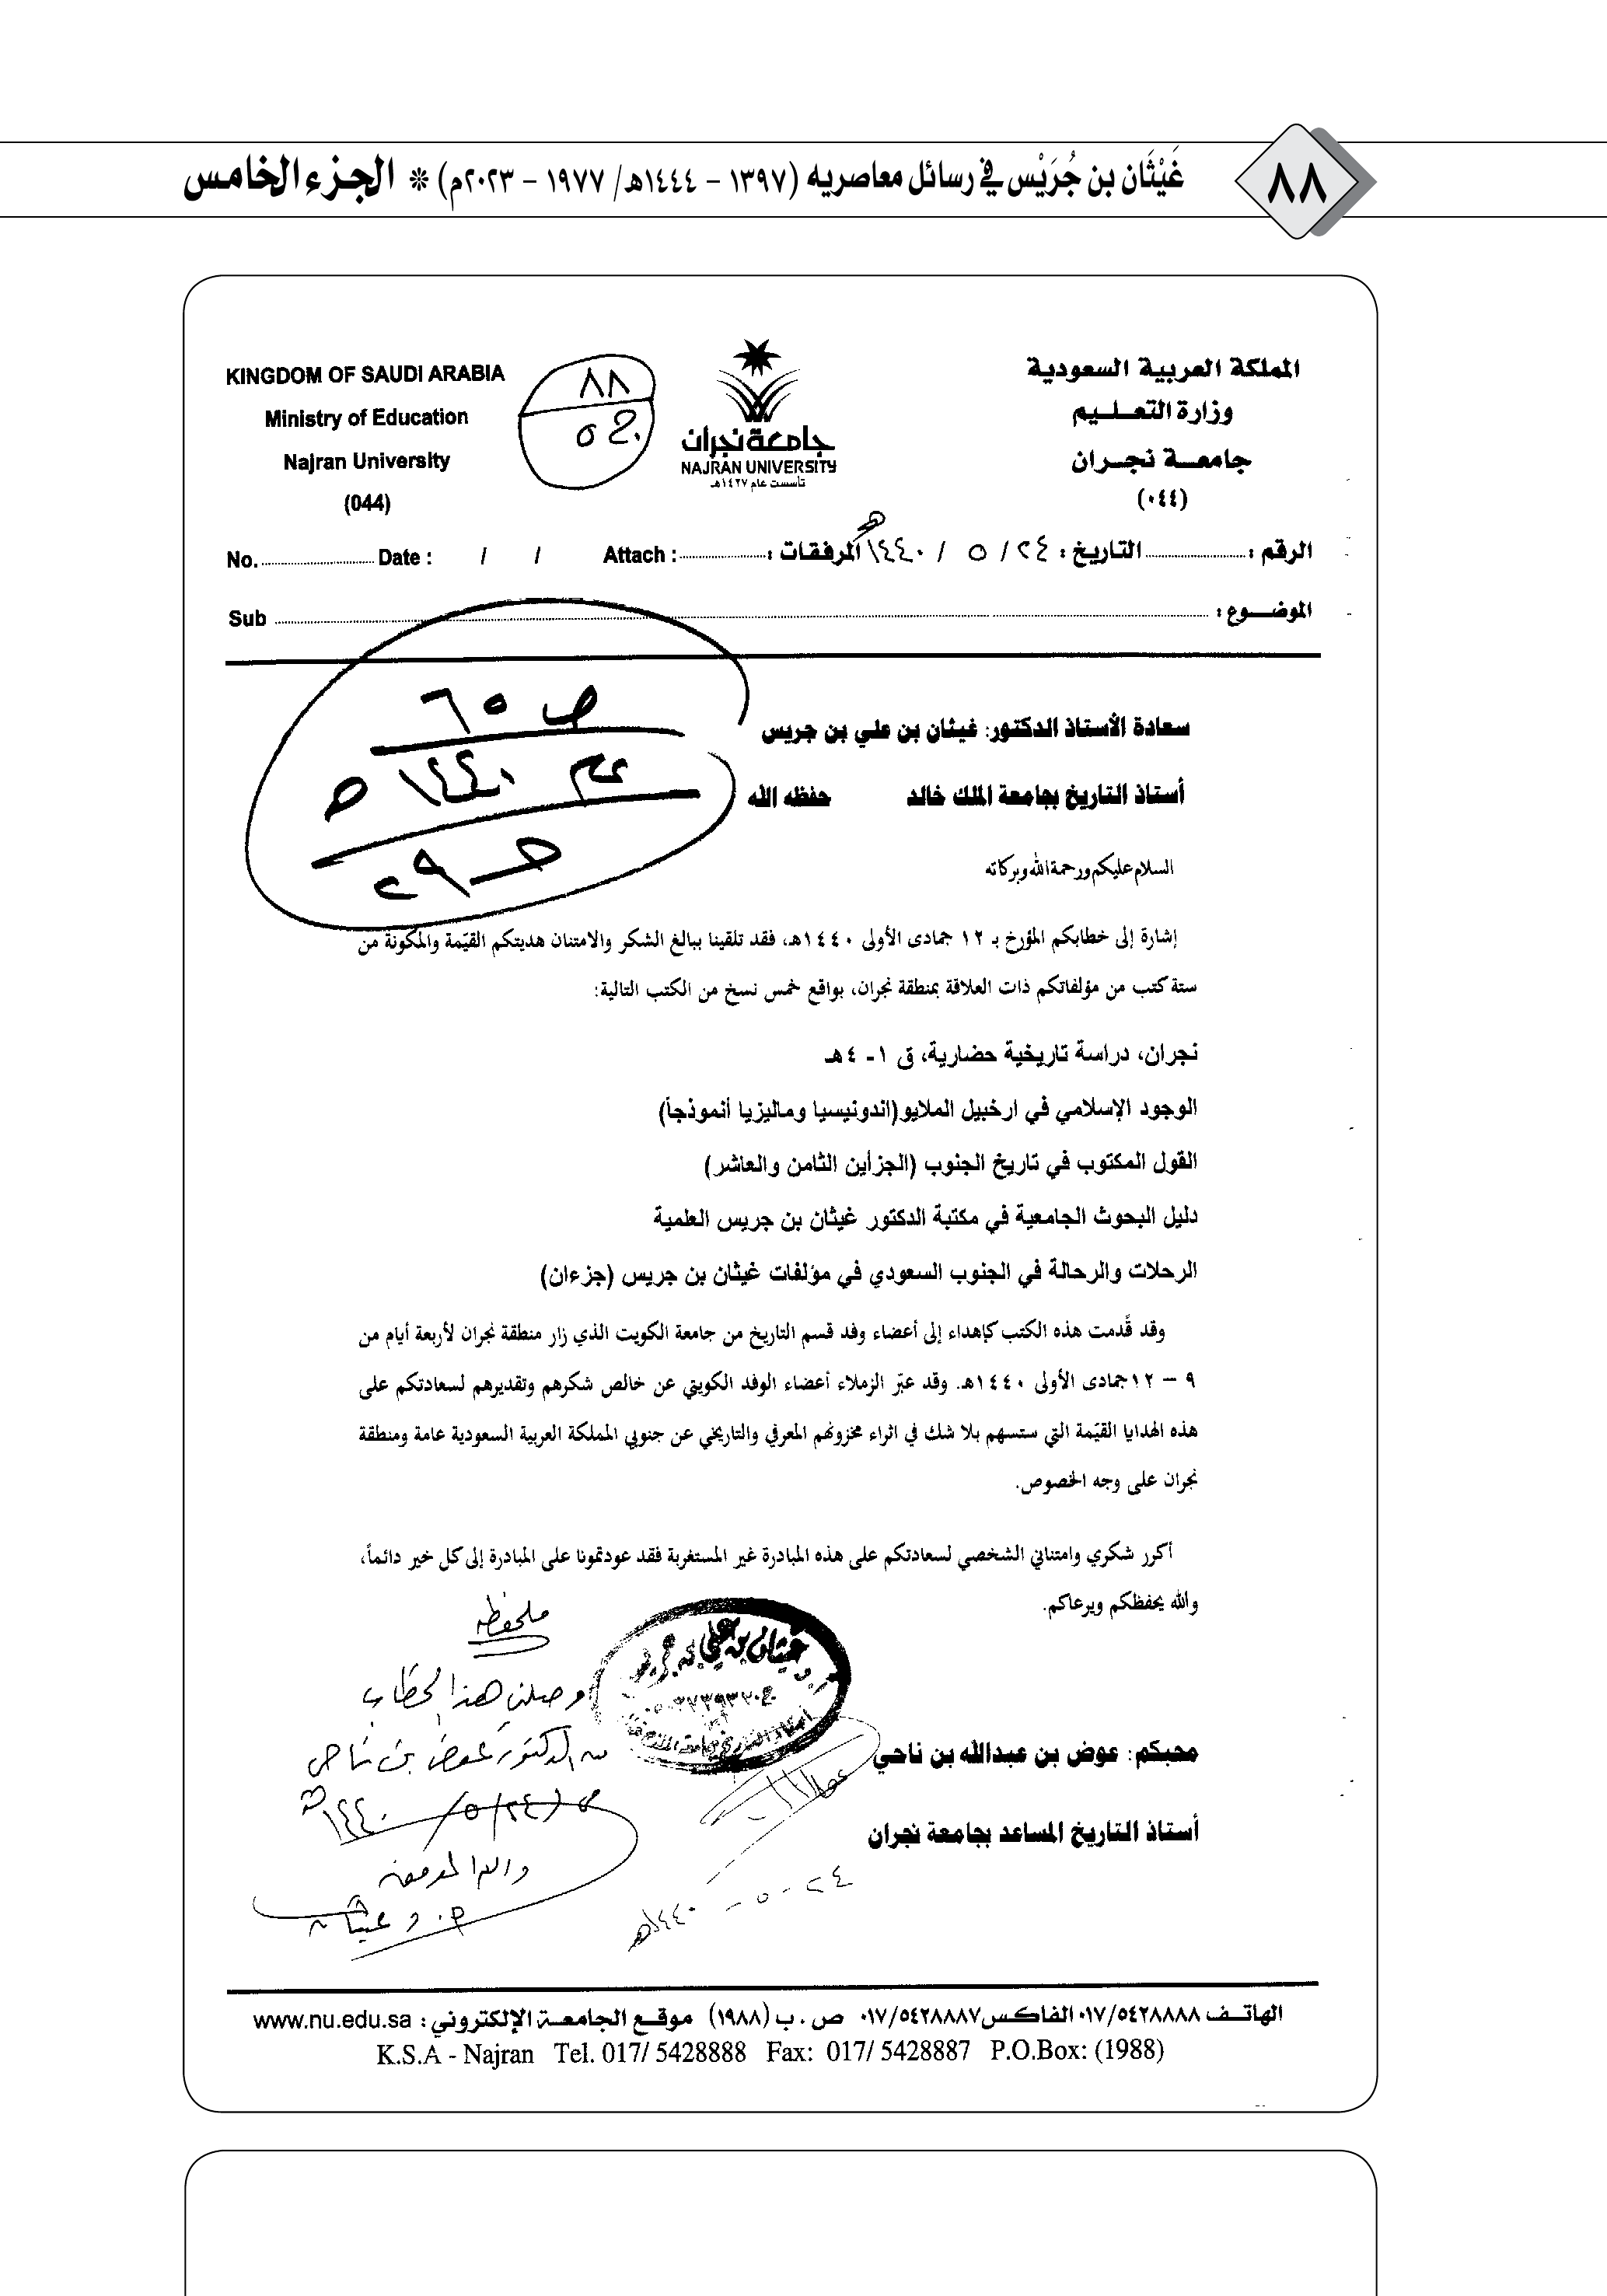 ٨٨
غَيْثَان بن جُرَيْس في رسائل معاصريه (١٣٩٧ - ١٤٤٤هـ/ ١٩٧٧ - ٢٠٢٣م) * الجزء الخامس
المملكة العربية السعودية
وزارة التعليم
جامعة نجران
(٠٤٤)
جامعة نجران
NAJRAN UNIVERSITY
تأسست عام ١٤٢٧هـ
٨٨
KINGDOM OF SAUDI ARABIA
Ministry of Education
Najran University
(044)
الرقم : التاريخ : ٢٤ / ٥ / ١٤٤٠هـ المرفقات :
No. Date : / / Attach :
الموضوع :
Sub
ص ٦٥
عام ١٤٤٠هـ
حـ ٢٩
سعادة الأستاذ الدكتور: غيثان بن علي بن جريس
أستاذ التاريخ بجامعة الملك خالد حفظه الله
السلام عليكم ورحمة الله وبركاته
إشارة إلى خطابكم المؤرخ بـ ١٢ جمادى الأولى ١٤٤٠هـ، فقد تلقينا ببالغ الشكر والامتنان هديتكم القيّمة والمكونة من
ستة كتب من مؤلفاتكم ذات العلاقة بمنطقة نجران، بواقع خمس نسخ من الكتب التالية:
نجران، دراسة تاريخية حضارية، ق ١- ٤هـ
الوجود الإسلامي في ارخبيل الملايو(اندونيسيا وماليزيا أنموذجاً)
القول المكتوب في تاريخ الجنوب (الجزأين الثامن والعاشر)
دليل البحوث الجامعية في مكتبة الدكتور غيثان بن جريس العلمية
الرحلات والرحالة في الجنوب السعودي في مؤلفات غيثان بن جريس (جزءان)
وقد قُدمت هذه الكتب كإهداء إلى أعضاء وفد قسم التاريخ من جامعة الكويت الذي زار منطقة نجران لأربعة أيام من
٩ – ١٢جمادى الأولى ١٤٤٠هـ. وقد عبّر الزملاء أعضاء الوفد الكويتي عن خالص شكرهم وتقديرهم لسعادتكم على
هذه الهدايا القيّمة التي ستسهم بلا شك في اثراء مخزونهم المعرفي والتاريخي عن جنوبي المملكة العربية السعودية عامة ومنطقة
نجران على وجه الخصوص.
أكرر شكري وامتناني الشخصي لسعادتكم على هذه المبادرة غير المستغربة فقد عودتمونا على المبادرة إلى كل خير دائماً،
والله يحفظكم ويرعاكم.
غيثان بن علي بن جريس
ملحوظة
وصلني هذا الخطاب
من الدكتور عوض بن ناحي
في ٢٤/ ٥/ ١٤٤٠هـ
والله الموفق
غيثان
محبكم: عوض بن عبدالله بن ناحي
أستاذ التاريخ المساعد بجامعة نجران
٢٤ - ٥ - ١٤٤٠هـ
الهاتف ٠١٧/٥٤٢٨٨٨٨ الفاكس ٠١٧/٥٤٢٨٨٨٧ ص . ب (١٩٨٨) موقع الجامعة الإلكتروني : www.nu.edu.sa
K.S.A - Najran Tel. 017/ 5428888 Fax: 017/ 5428887 P.O.Box: (1988)